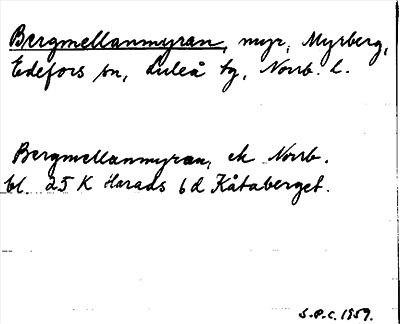 Bergmellanmyran, myr, Myrberg,
Edefors sn, Luleå tg, Norrb. l.
Bergmellanmyran, ek Norrb.
bl. 25 K Harads 6d Kåtaberget.
S.P.C. 1959.